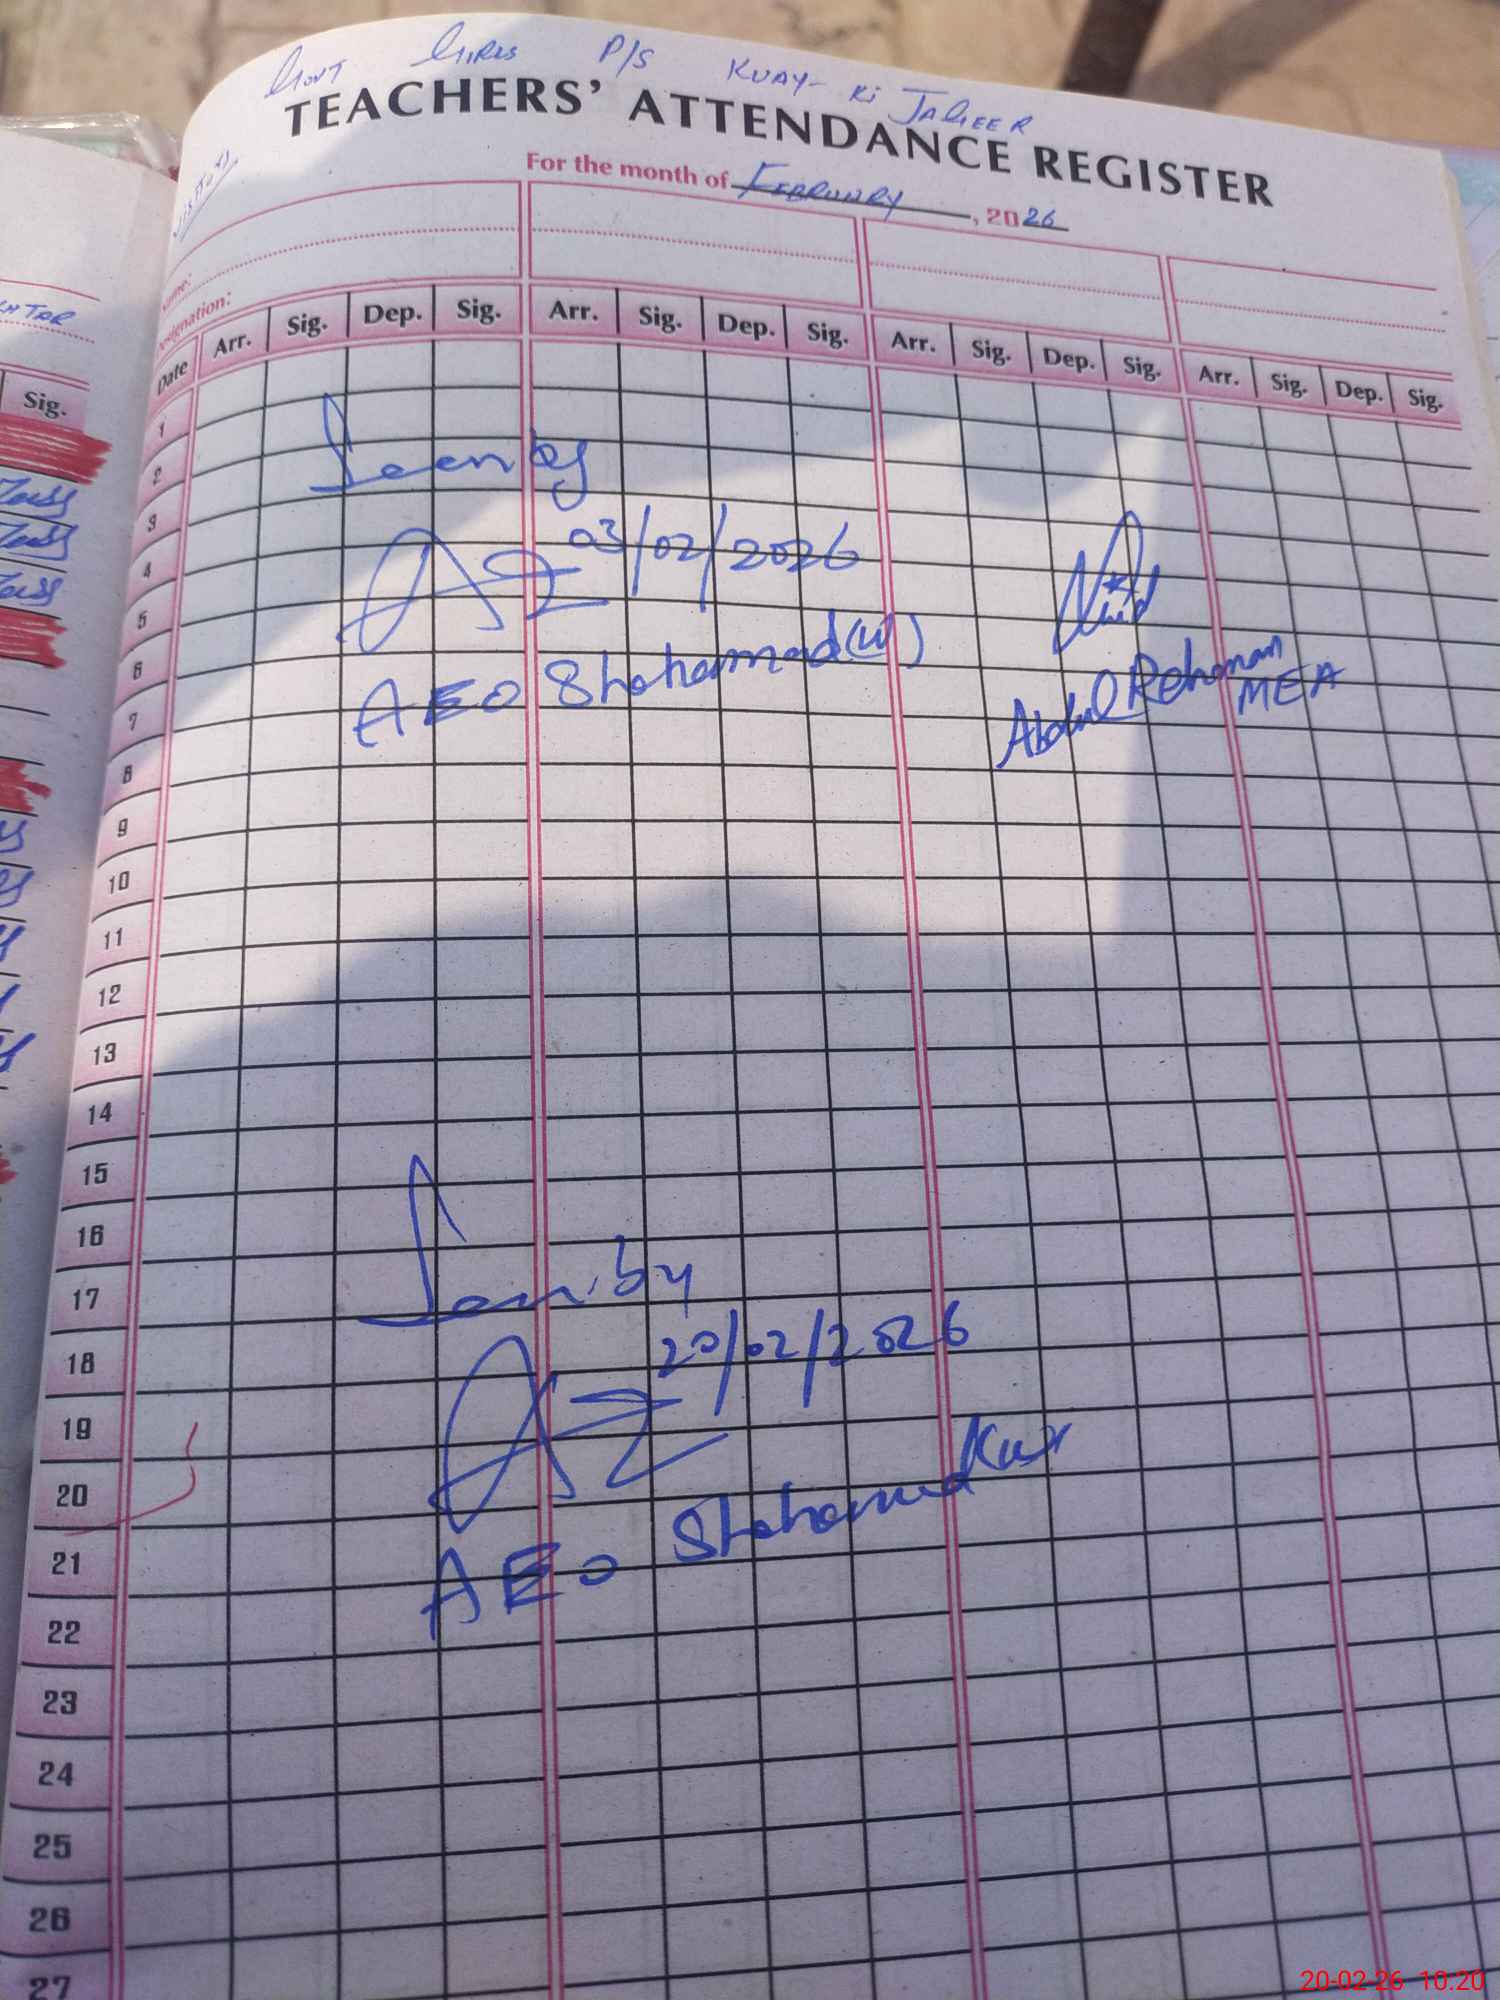 Govt Girls P/S Kuay- Ki Jageer
TEACHERS' ATTENDANCE REGISTER
For the month of February, 2026
Name:
Designation:
Date Arr. Sig. Dep. Sig. Arr. Sig. Dep. Sig. Arr. Sig. Dep. Sig. Arr. Sig. Dep. Sig.
Sig.
1
2
Seen by
3
03/02/2026
4
5
AEO Shahammad (W)
Abdul Rehman
MEA
6
7
8
9
10
11
12
13
14
15
16
17
Seen by
18
20/02/2026
19
20
AEO Shahammad
21
22
23
24
25
26
27
20-02-26 10:20